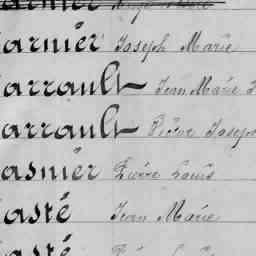 arnier Joseph Marie
arrault Jean Marie
arrault Pierre Joseph
asnier Pierre Louis
asté Jean Marie
asté